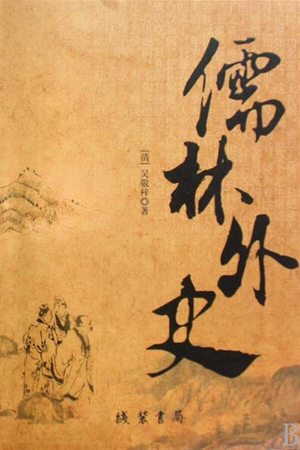 儒林外史
[清]吴敬梓◎著
线装书局
B